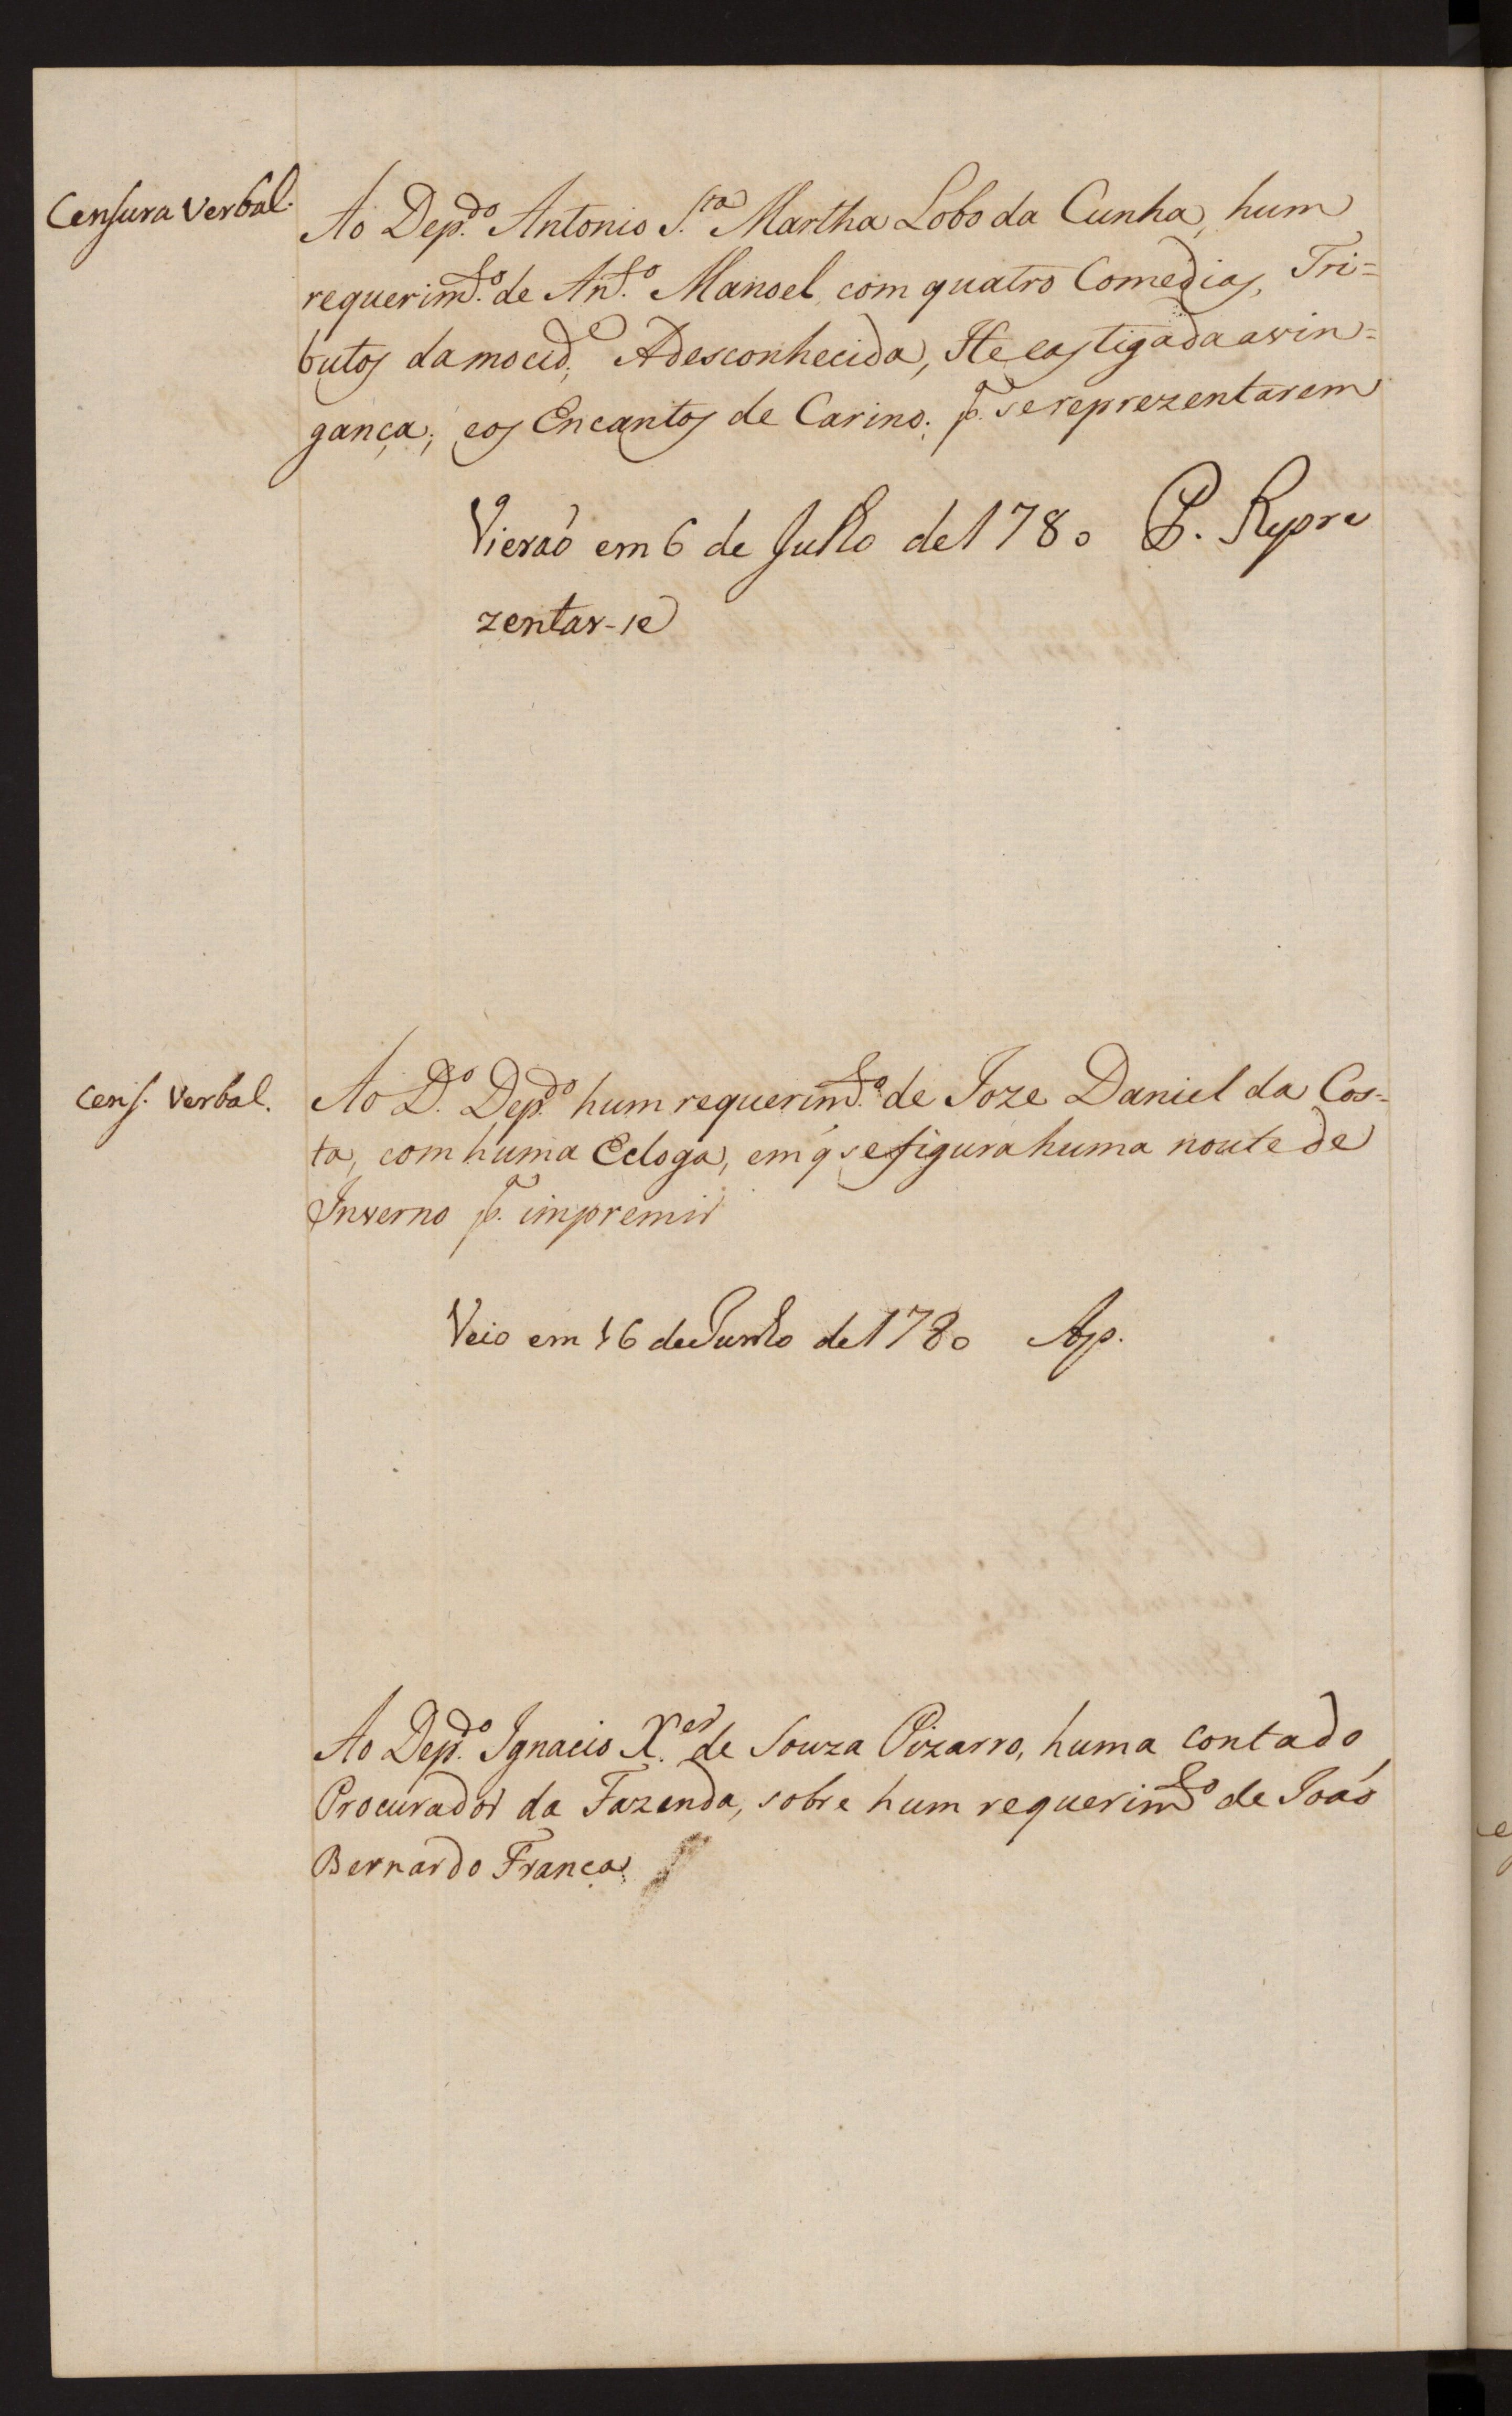 Censura Verbal.
Ao Dep.do Antonio S.ta Martha Lobo da Cunha, hum
requerim.to de An.to Manoel, com quatro Comedias, Tri=
butos da mocid.e, A desconhecida, He castigada a vin=
gança; e os Encantos de Carino; p.a se reprezentarem
Vieraõ em 6 de Julho de 1780 P. Repre
zentar-se
Cens. Verbal.
Ao D.o Dep.do hum requerim.to de Joze Daniel da Cos=
ta, com huma Ecloga, em q̃ se figura huma noute de
Inverno p.a impremir
Veio em 16 de Junho de 1780 Ap.
Ao Dep.do Ignacio X.er de Souza Pizarro, huma conta do
Procurador da Fazenda, sobre hum requerim.to de Joaõ
Bernardo França